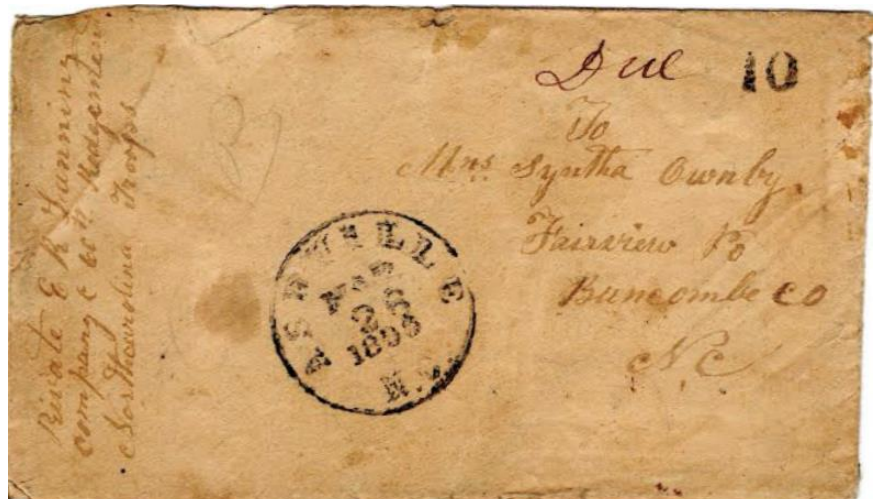 Private E R Lanning
company C 60th Redgement
North carolina Troops
Due 10
To
Mrs. Syntha Ownby
Fairview Po
Buncombe CO
N, C
ASHVILLE
MAR
26
N.C.